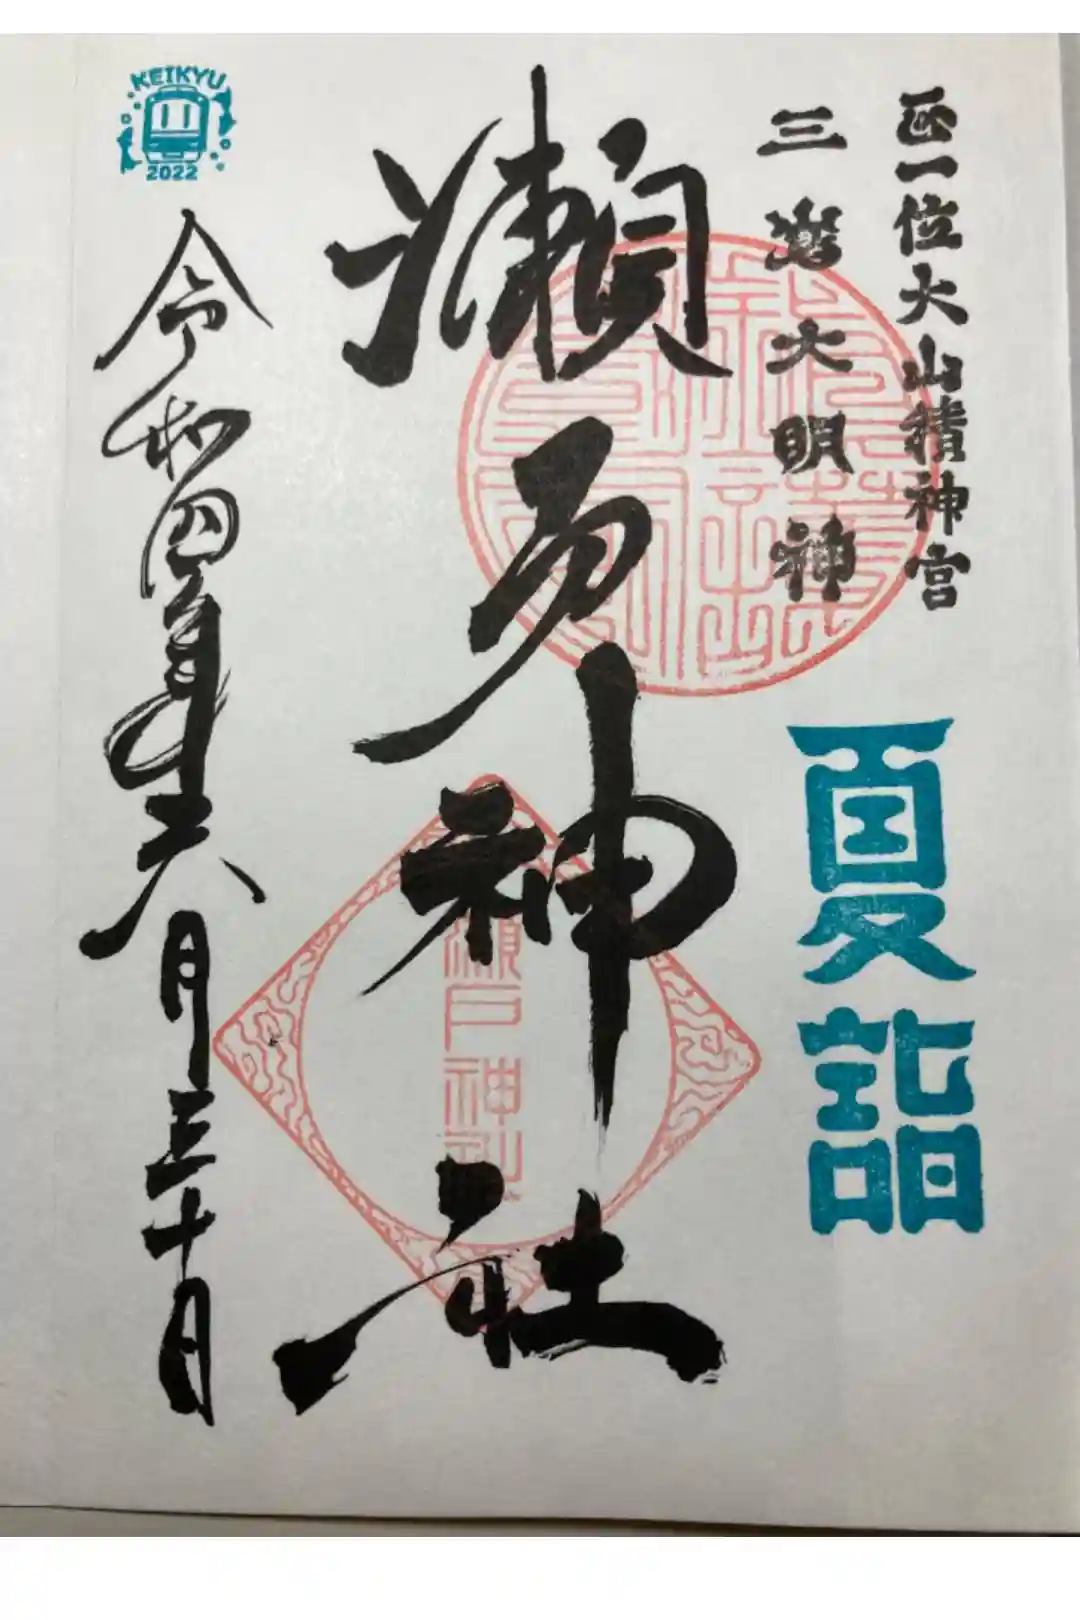 正一位大山積神宮
三嶌大明神
夏詣
瀬戸神社
瀬戸神社
令和四年六月三十日
KEIKYU
2022